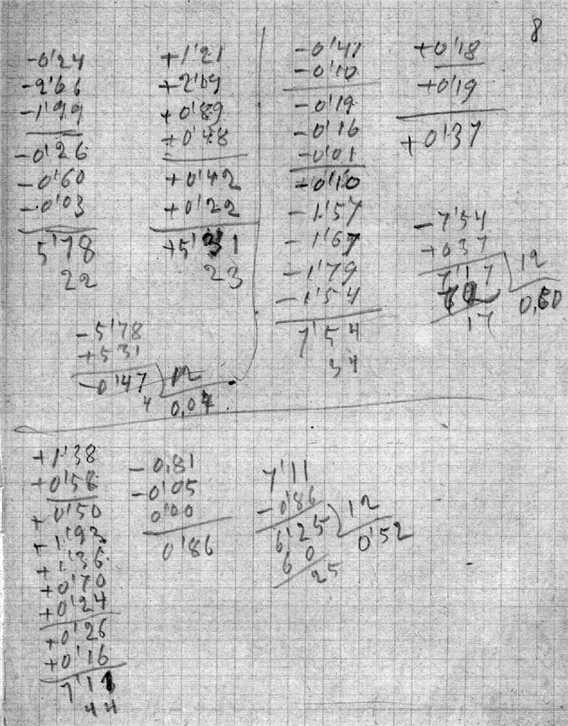 8
-0'24
-2'66
-1'99
-0'26
-0'60
-0'03
5'78
22
+1'21
+2'09
+0'89
+0'48
+0'42
+0'22
+5'31
23
-5'78
+5'31
-0'47 12
4 0,04
-0'41
-0'10
-0'19
-0'16
-0'01
+0'10
-1'57
-1'67
-1'79
-1'54
7'54
34
+0'18
+0'19
+0'37
-7'54
+037
7'17 12
0,60
17
+1'38
+0'58
+0'50
+1'93
+1'36
+0'70
+0'24
+0'26
+0'16
7'11
44
-0,81
-0'05
0'00
0'86
7'11
-0'86
6'25 12
60 0'52
25